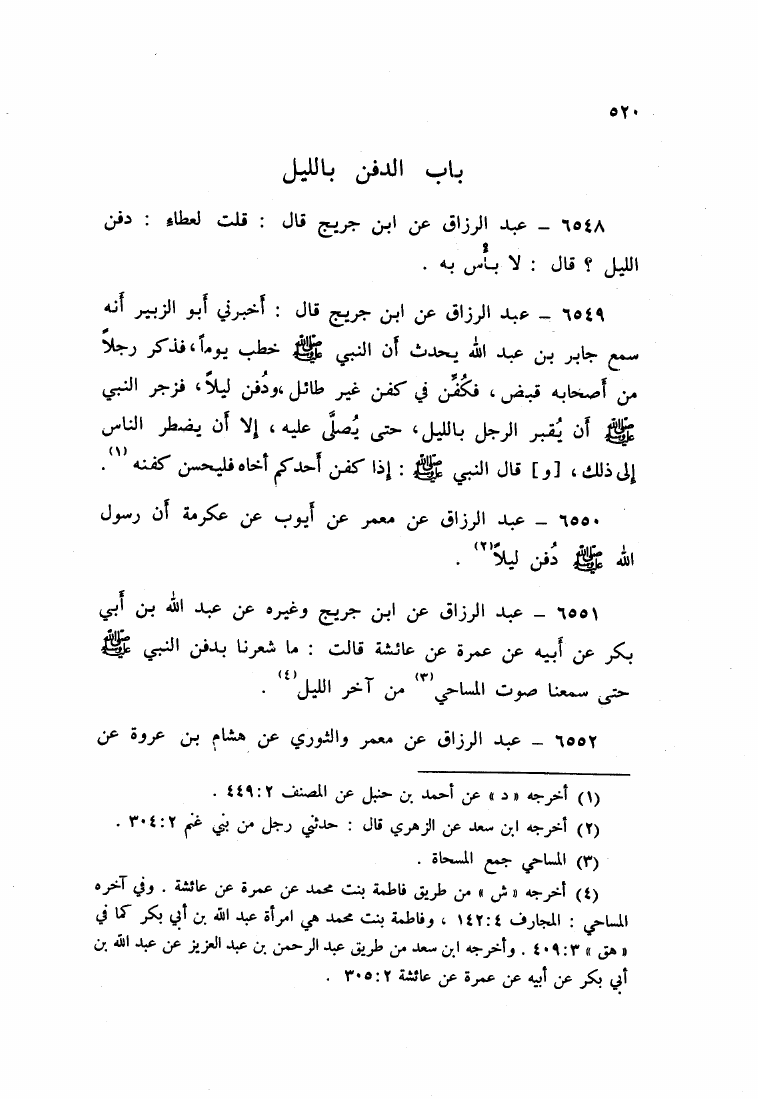 ٥٢٠
باب الدفن بالليل
٦٥٤٨ – عبد الرزاق عن ابن جريج قال : قلت لعطاء : دفن
الليل ؟ قال : لا بأْس به .
٦٥٤٩ – عبد الرزاق عن ابن جريج قال : أخبرني أبو الزبير أنه
سمع جابر بن عبد الله يحدث أن النبي ﷺ خطب يوماً، فذكر رجلاً
من أصحابه قبض ، فكُفِّن في كفن غير طائل، ودُفن ليلاً، فزجر النبي
ﷺ أن يُقبر الرجل بالليل، حتى يُصلَّى عليه ، إلا أن يضطر الناس
إلى ذلك ، [و] قال النبي ﷺ : إذا كفن أحدكم أخاه فليحسن كفنه (١).
٦٥٥٠ – عبد الرزاق عن معمر عن أيوب عن عكرمة أن رسول
الله ﷺ دُفن ليلاً(٢) .
٦٥٥١ – عبد الرزاق عن ابن جريج وغيره عن عبد الله بن أبي
بكر عن أبيه عن عمرة عن عائشة قالت : ما شعرنا بدفن النبي ﷺ
حتى سمعنا صوت المساحي(٣) من آخر الليل(٤) .
٦٥٥٢ – عبد الرزاق عن معمر والثوري عن هشام بن عروة عن
(١) أخرجه « د » عن أحمد بن حنبل عن المصنف ٢ : ٤٤٩ .
(٢) أخرجه ابن سعد عن الزهري قال : حدثني رجل من بني غنم ٢ : ٣٠٤ .
(٣) المساحي جمع المسحاة .
(٤) أخرجه « ش » من طريق فاطمة بنت محمد عن عمرة عن عائشة . وفي آخره
المساحي : المجارف ٤ : ١٤٢ ، وفاطمة بنت محمد هي امرأة عبد الله بن أبي بكر كما في
« هق » ٣ : ٤٠٩ . وأخرجه ابن سعد من طريق عبد الرحمن بن عبد العزيز عن عبد الله بن
أبي بكر عن أبيه عن عمرة عن عائشة ٢ : ٣٠٥ .